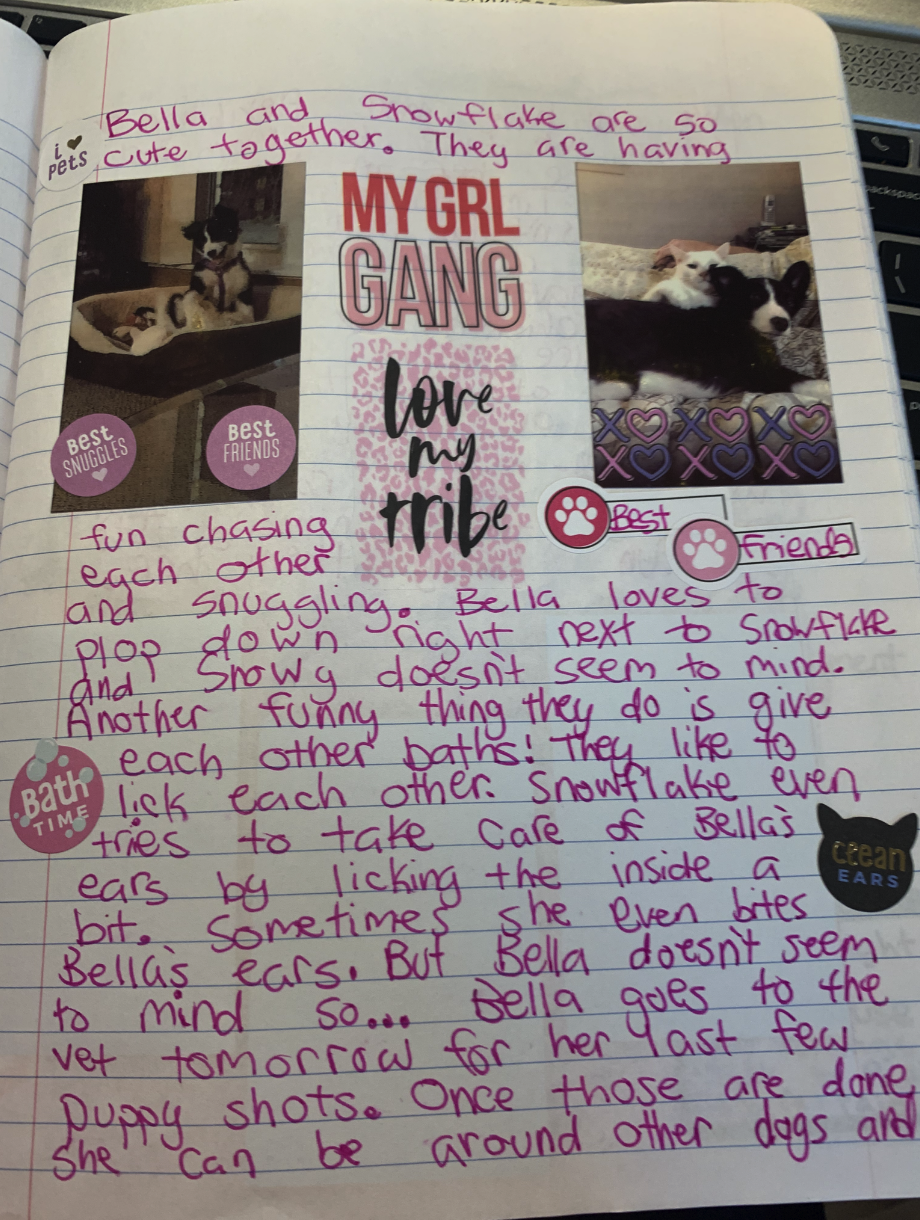 Bella and Snowflake are so
i ♥
pets
cute together. They are having
MY GRL
GANG
love
my
tribe
Best
SNUGGLES
BEST
FRIENDS
XO XO XO
XO XO XO
Best
Friends
fun chasing
each other
and snuggling. Bella loves to
plop down right next to Snowflake
and Snowy doesn't seem to mind.
Another funny thing they do is give
each other baths! They like to
Bath
TIME
lick each other. Snowflake even
tries to take care of Bella's
clean
EARS
ears by licking the inside a
bit. Sometimes she even bites
Bella's ears. But Bella doesn't seem
to mind so... Bella goes to the
vet tomorrow for her last few
puppy shots. Once those are done
she can be around other dogs and
backspace